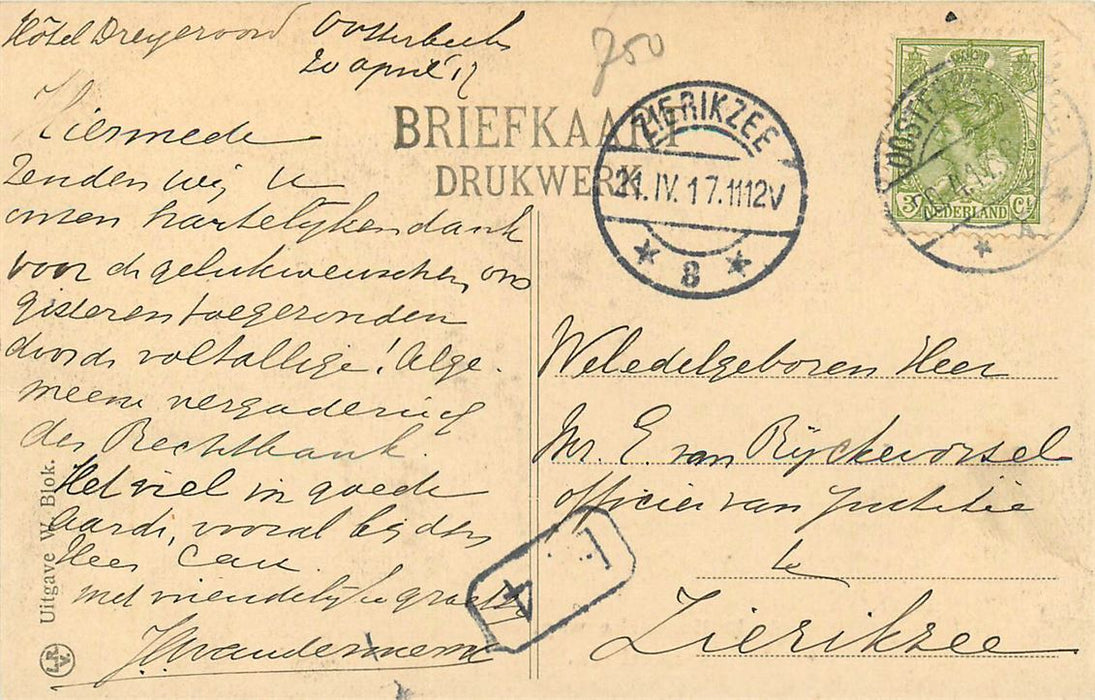 Hôtel Dreyeroord Oosterbeek
20 april 17
750
BRIEFKAART
DRUKWERK
ZIERIKZEE
21.IV.17.1112V
8
OOSTERBEEK
3 Ct
NEDERLAND
Hiermede
Zenden wij U
onzen hartelijken dank
voor de gelukwenschen, ons
gisteren toegezonden
door de voltallige! Alge-
meene vergadering
der Rechtbank.
Het viel in goede
aarde, vooral bij den
Heer Cau
met vriendelijke groeten
Weledelgeboren Heer
Mr. E. van Rijckevorsel
officier van Justitie
te
Zierikzee
Uitgave W. Blok.
L.R.
V.
4